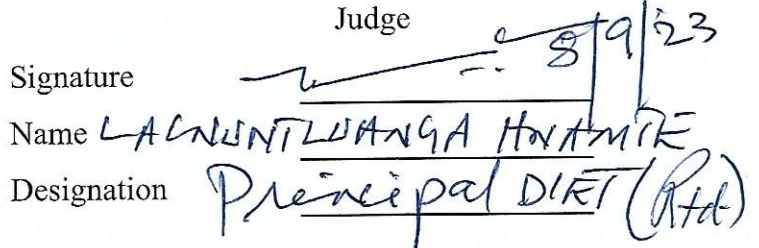 Judge
Signature 8/9/23
Name LALNUNTLUANGA HNAMTE
Designation Principal DIET (Rtd)